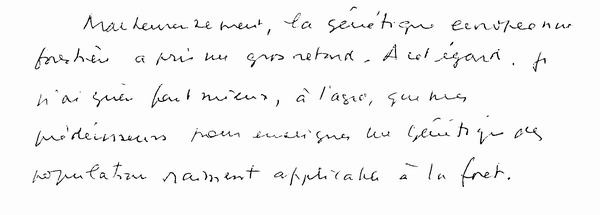 Malheureusement, la génétique européenne
forestière a pris un gros retard. A cet égard, je
n'ai guère fait mieux, à l'agro, que mes
prédécesseurs pour enseigner une génétique des
population vraiment applicable à la forêt.